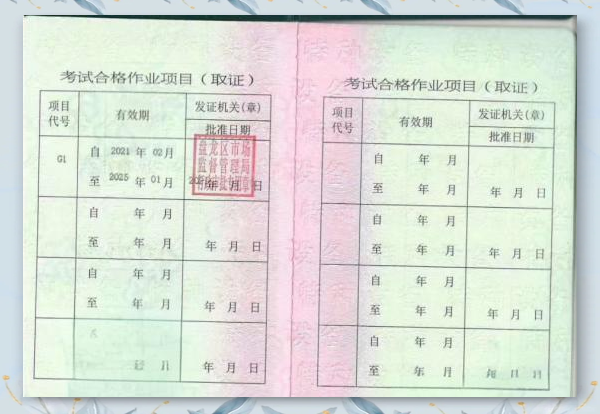 考试合格作业项目(取证)
项目代号 有效期 发证机关(章)
批准日期
G1 自 2021 年 02月
至 2025 年 01月
盘龙区市场
监督管理局
年 月 日
自 年 月
至 年 月 年 月 日
自 年 月
至 年 月 年 月 日
年 月 日
考试合格作业项目(取证)
项目代号 有效期 发证机关(章)
批准日期
自 年 月
至 年 月 年 月 日
自 年 月
至 年 月 年 月 日
自 年 月
至 年 月 年 月 日
自 年 月
至 年 月